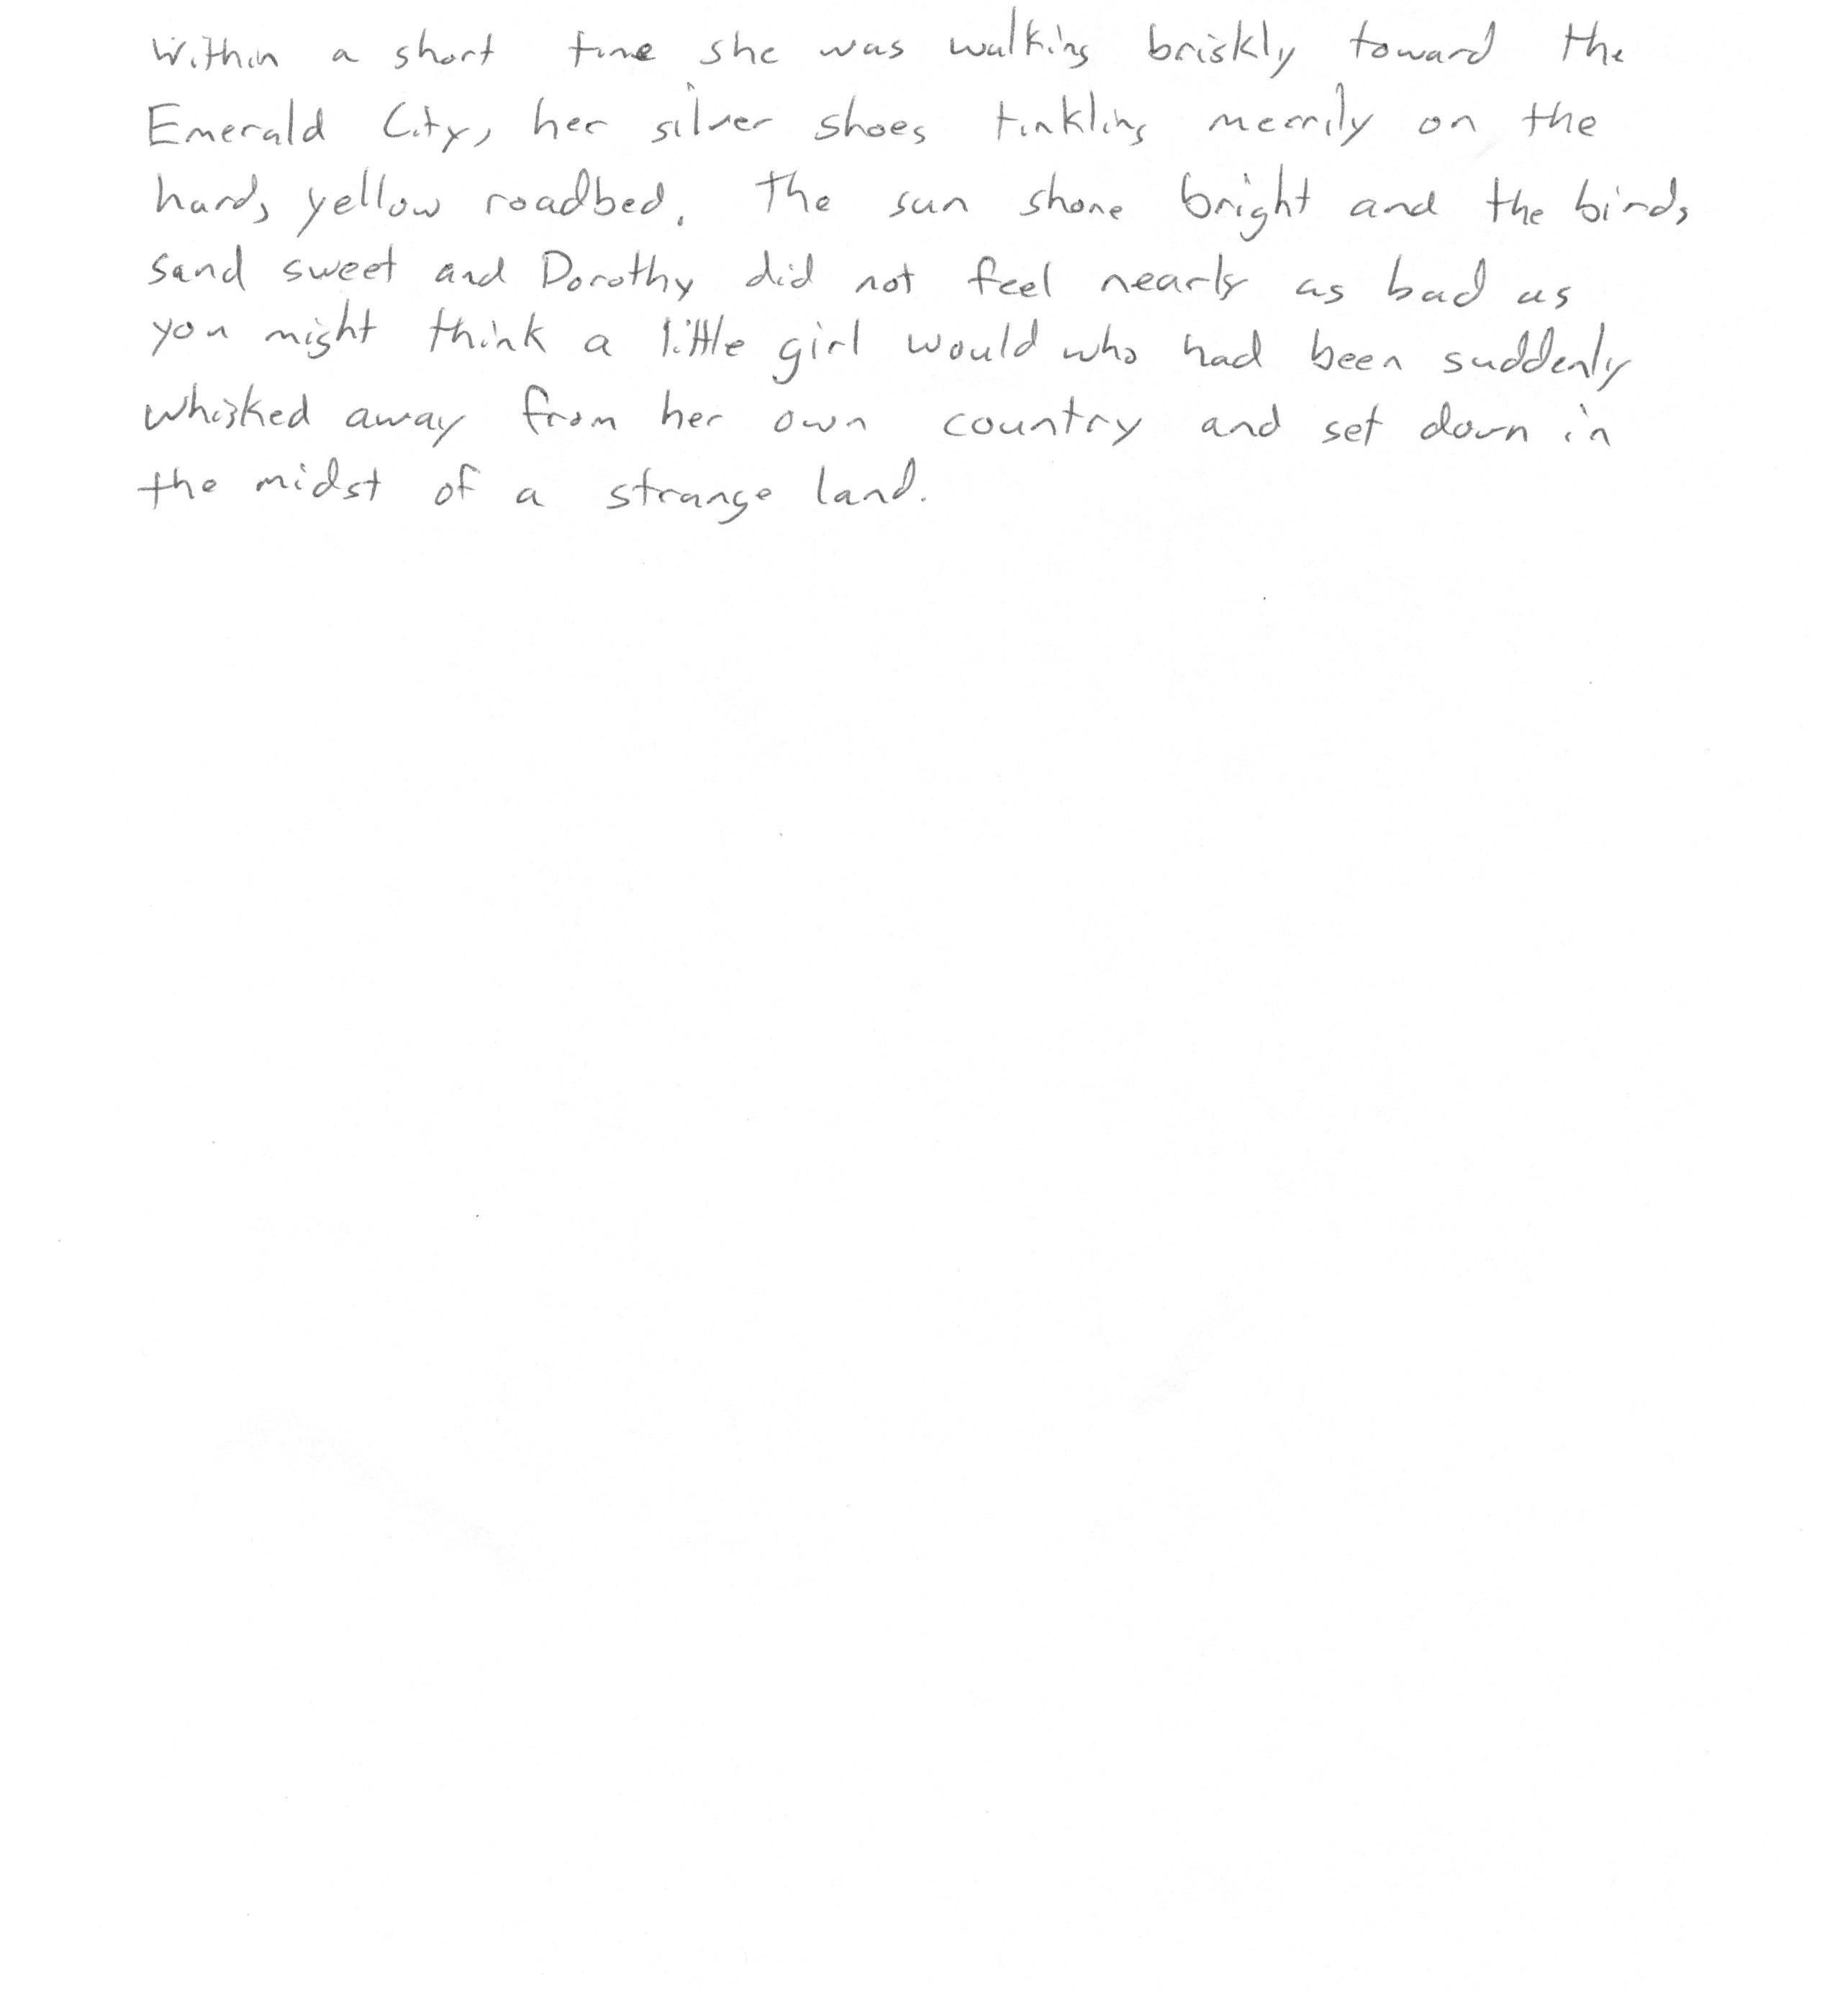 Within a short time she was walking briskly toward the
Emerald City, her silver shoes tinkling merrily on the
hard, yellow roadbed. The sun shone bright and the birds
sand sweet and Dorothy did not feel nearly as bad as
you might think a little girl would who had been suddenly
whisked away from her own country and set down in
the midst of a strange land.